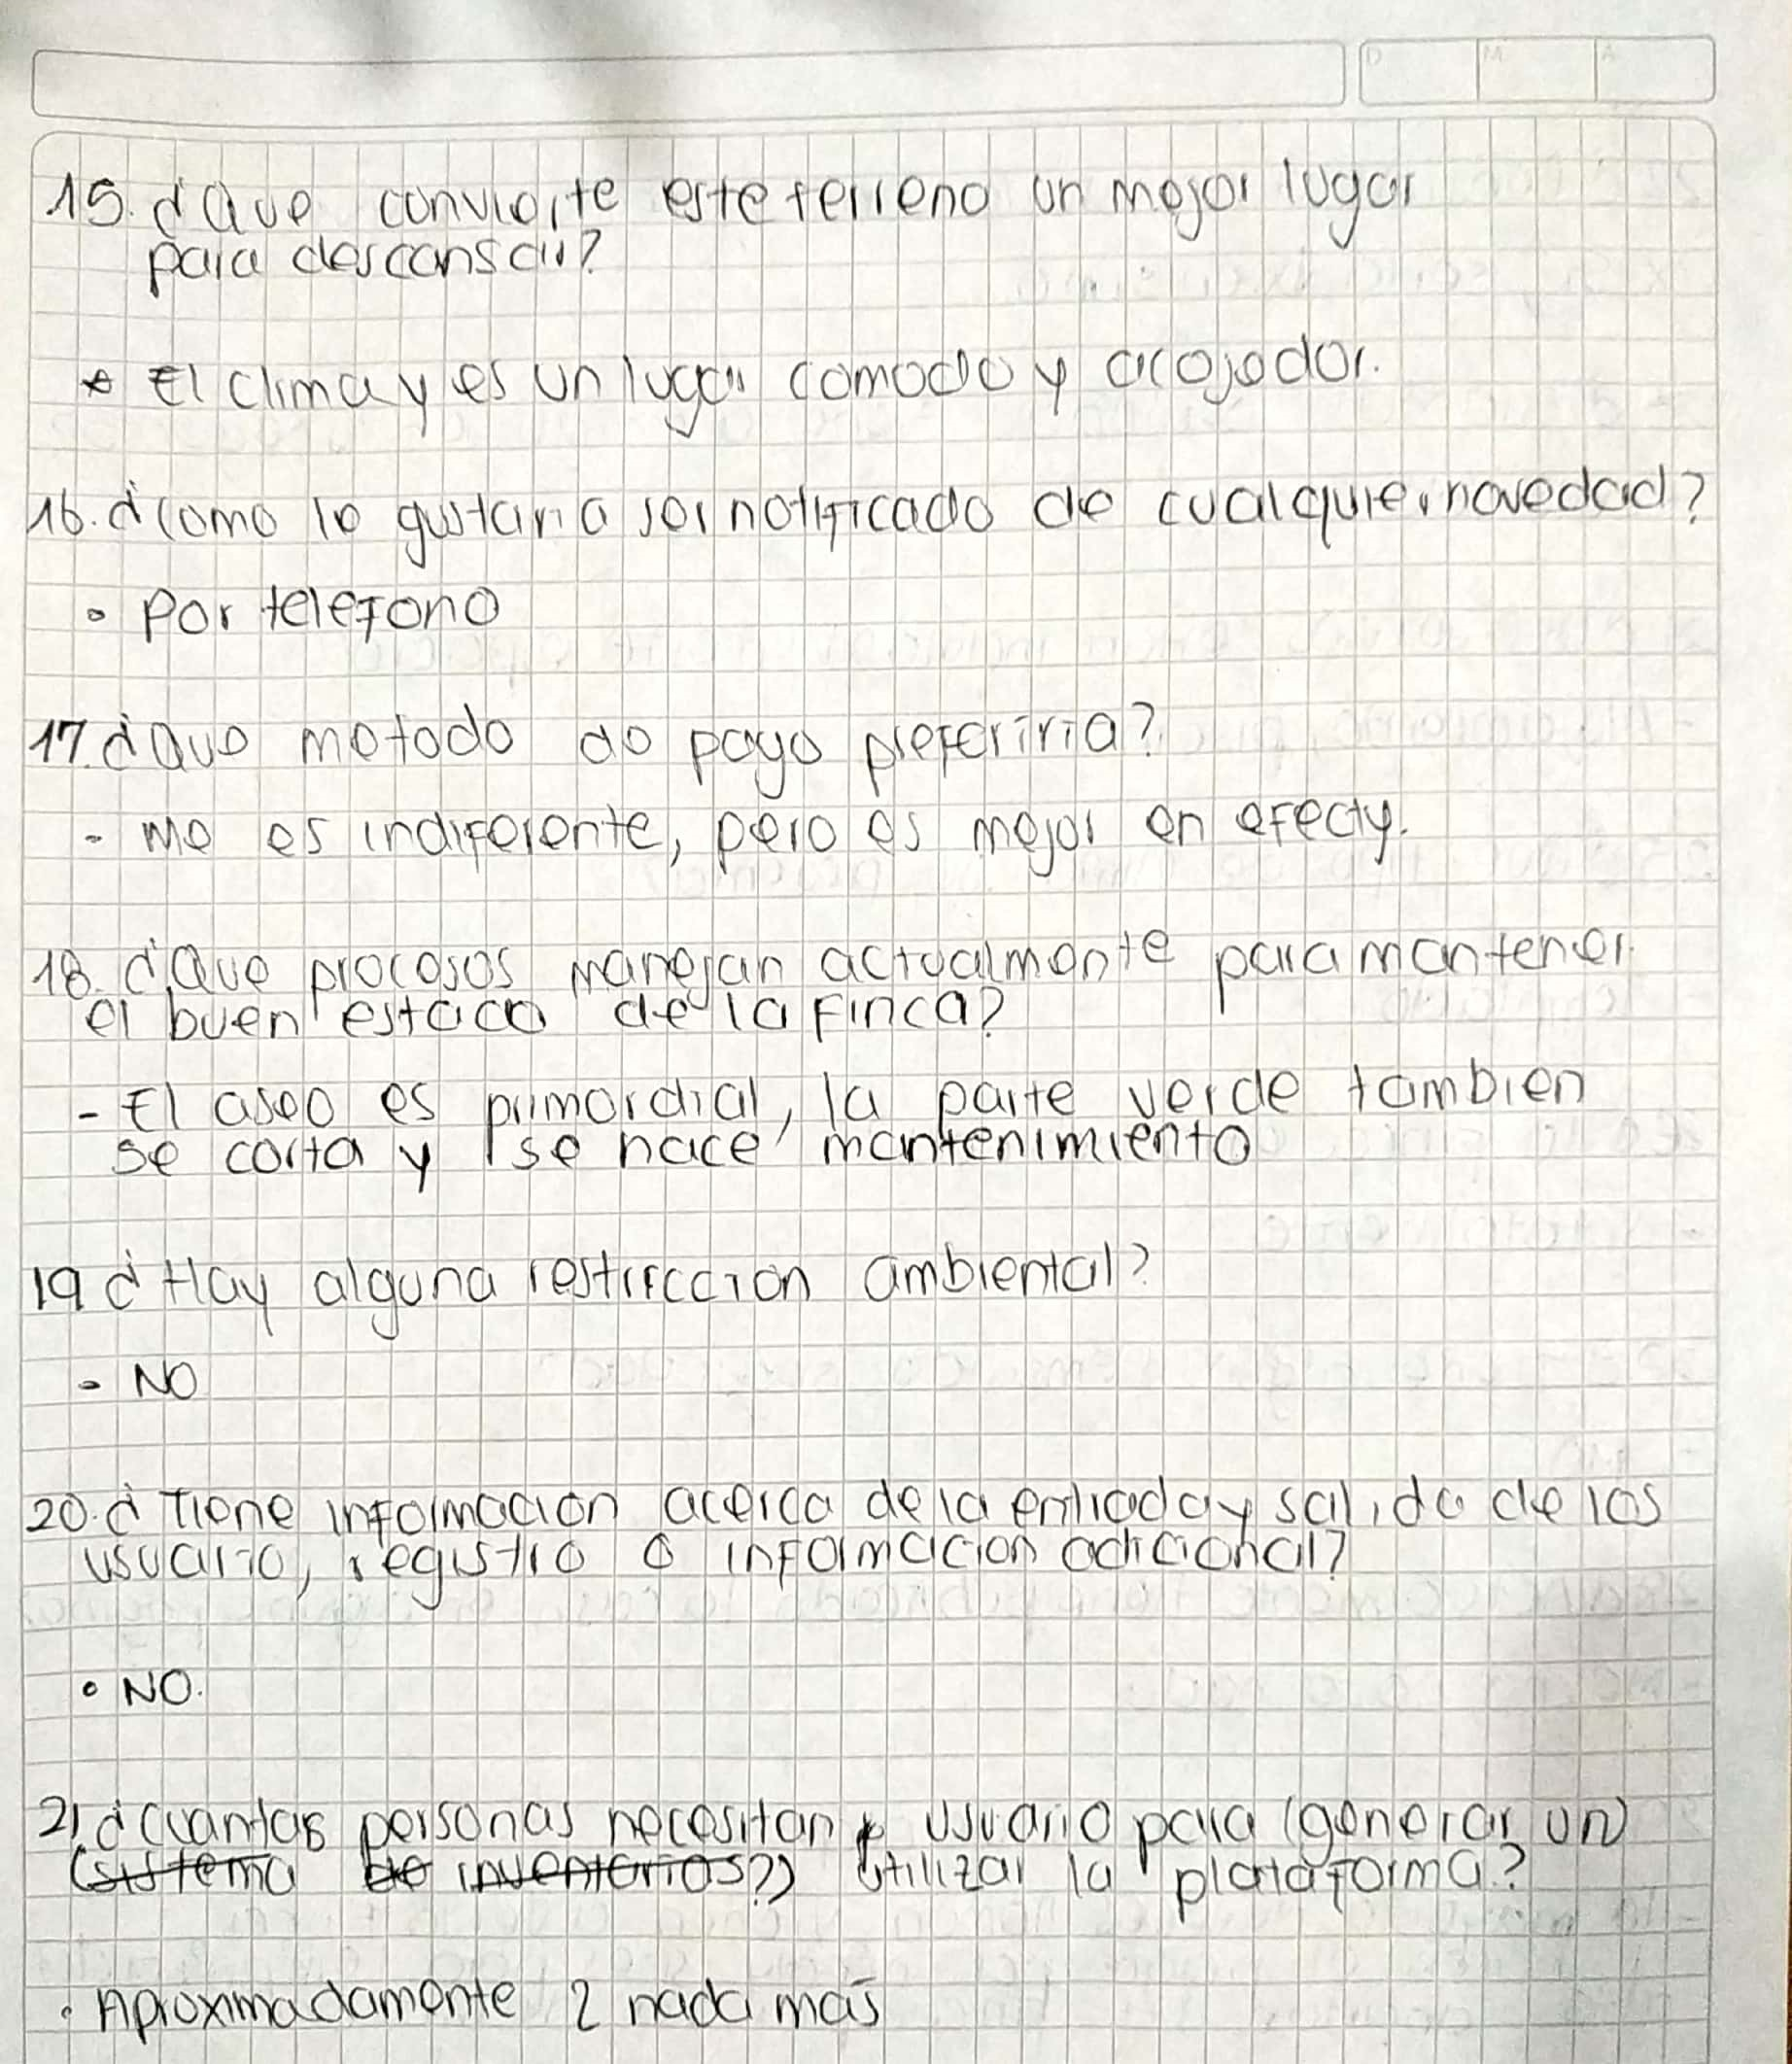 15. ¿Que convierte este terreno un mejor lugar
para descansar?
* El clima y es un lugar comodo y acojedor.
16. ¿Como le gustaria ser notificado de cualquier novedad?
• Por telefono
17. ¿Que metodo de pago preferiria?
- Me es indiferente, pero es mejor en efecty.
18. ¿Que procesos manejan actualmente para mantener
el buen estado de la finca?
- El aseo es primordial, la parte verde tambien
se corta y se hace mantenimiento
19 ¿Hay alguna restriccion ambiental?
- NO
20. ¿Tiene informacion acerca de la entrada y salida de los
usuario, registro o informacion adicional?
• NO.
21. ¿Cuantas personas necesitan usuario para (generar un)
(sistema de inventarios?)) utilizar la plataforma?
• Aproximadamente 2 nada más